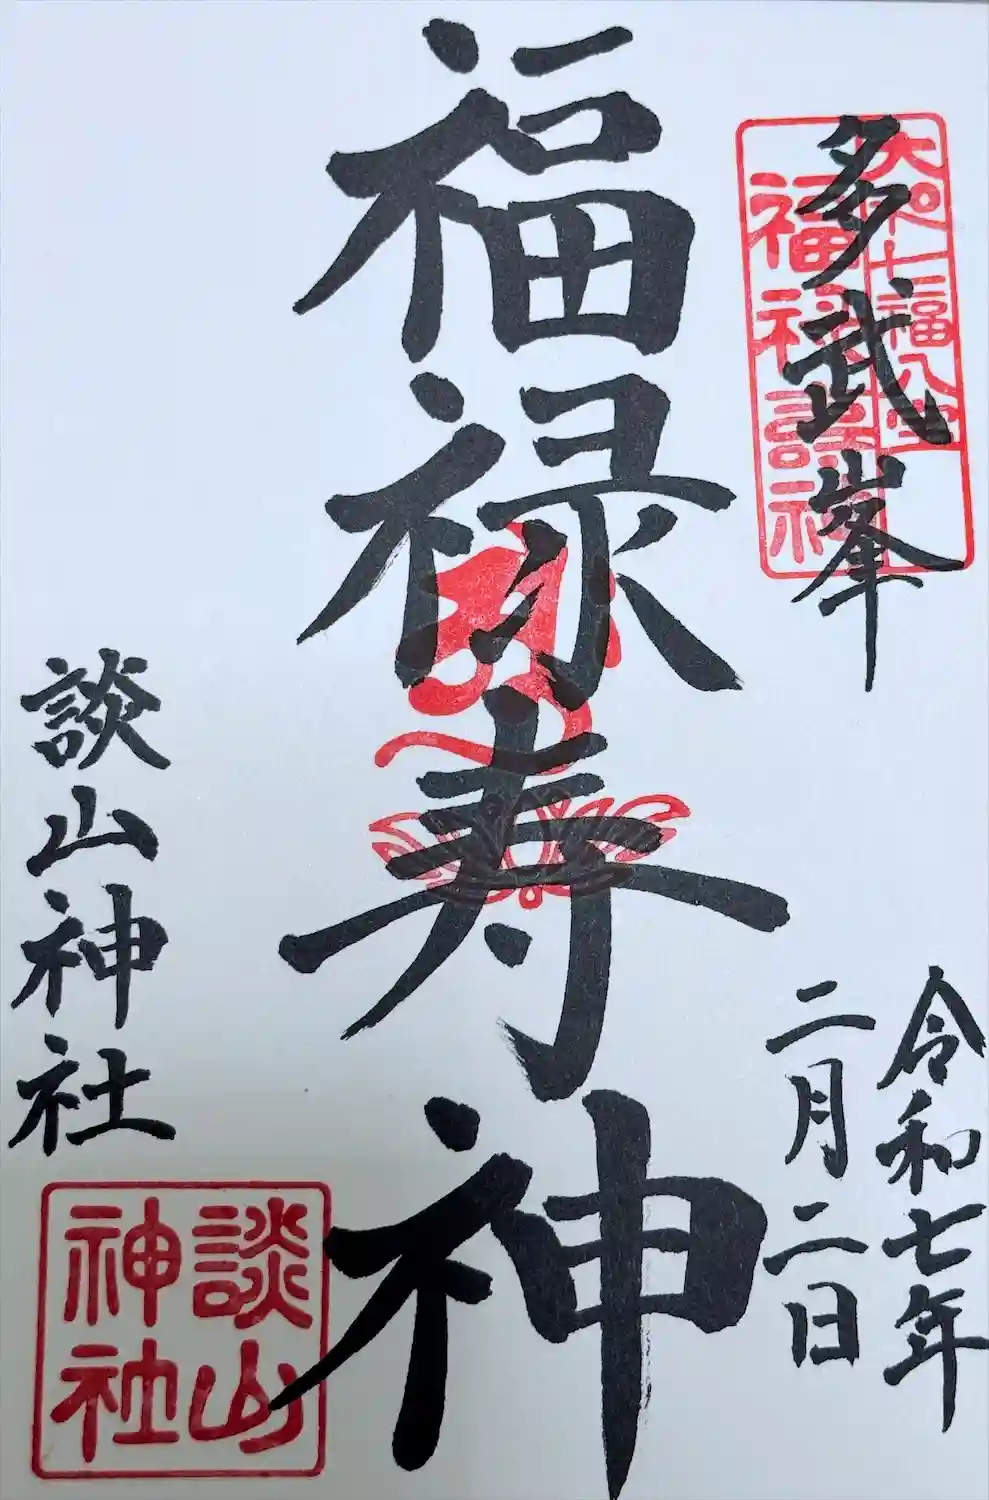 多武峯
大和七福八宝
福禄寿神
福禄寿神
令和七年
二月二日
談山神社
談山
神社